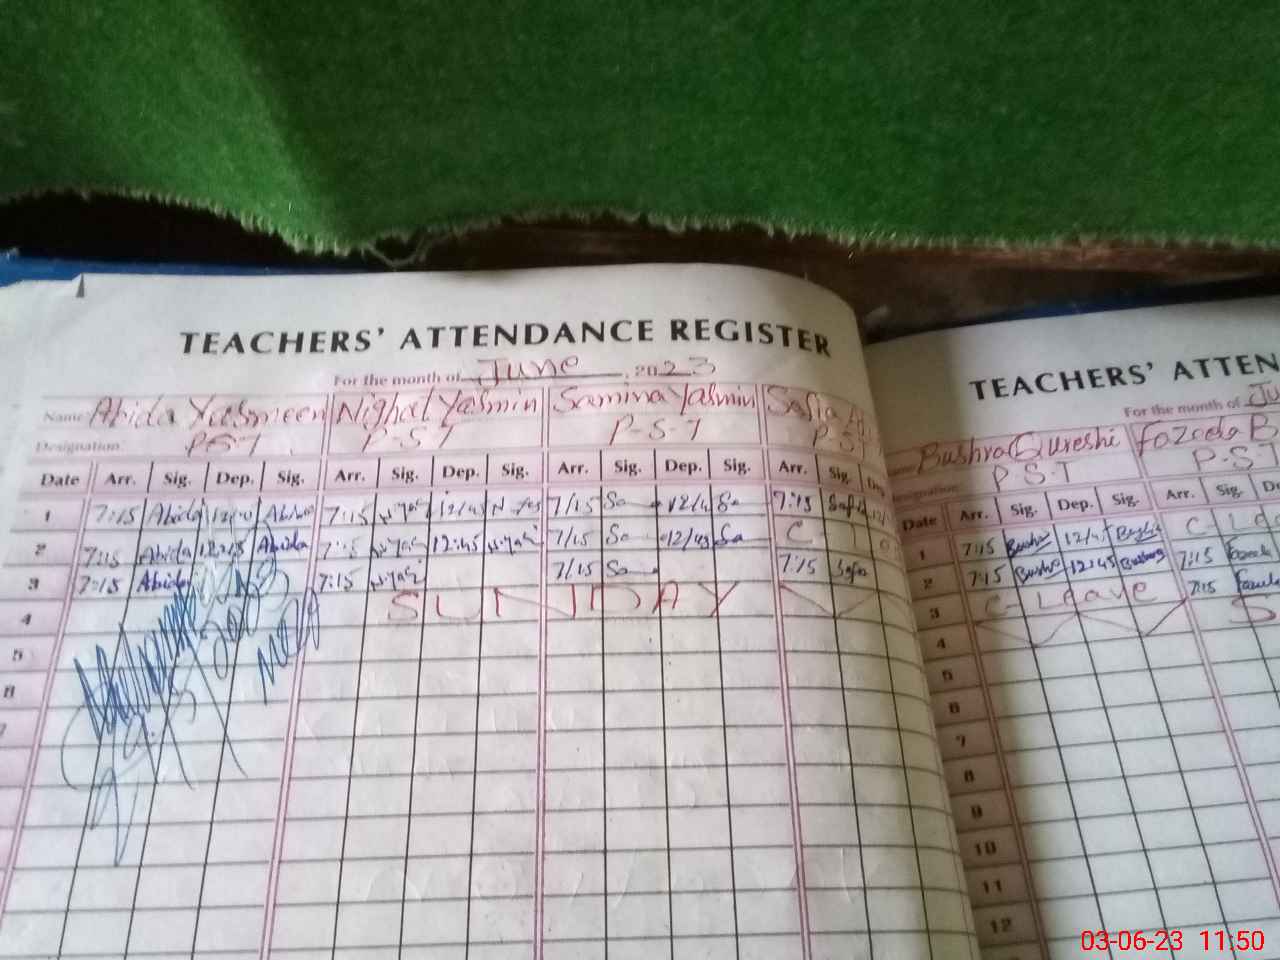 TEACHERS' ATTENDANCE REGISTER
For the month of June, 2023
Name Abida Yasmeen Nighat Yasmin Samina Yasmin Safia
Designation P-S-T P-S-T P-S-T P-S-T
Date Arr. Sig. Dep. Sig. Arr. Sig. Dep. Sig. Arr. Sig. Dep. Sig. Arr. Sig.
1 7:15 Abida Abida 7:15 12/45 7/15 Sa 12/4 Sa 7:15 Safia
2 7:15 Abida 12:45 Abida 7:15 12:45 7/15 Sa 12/45 Sa C
3 7:15 Abida 7:15 7/15 Sa 7:15 Safia
4 SUNDAY
5
6
7
TEACHERS' ATTEN
For the month of Ju
Bushra Qureshi Fozeda B
P-S-T P-S-T
Date Arr. Sig. Dep. Sig. Arr. Sig. De
1 7:15 Bushra 12/45 Bushra C-Lea
2 7:15 Bushra 12:45 Bushra 7:15
3 C-Leave 7:15
4 S
5
6
7
8
9
10
11
12
03-06-23 11:50